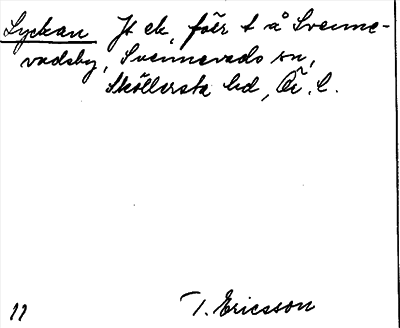 Lyckan Jt ek, förr t å Svenne-
vadsby, Svennevads sn,
Sköllersta hd, Ör. l.
11 T. Ericsson